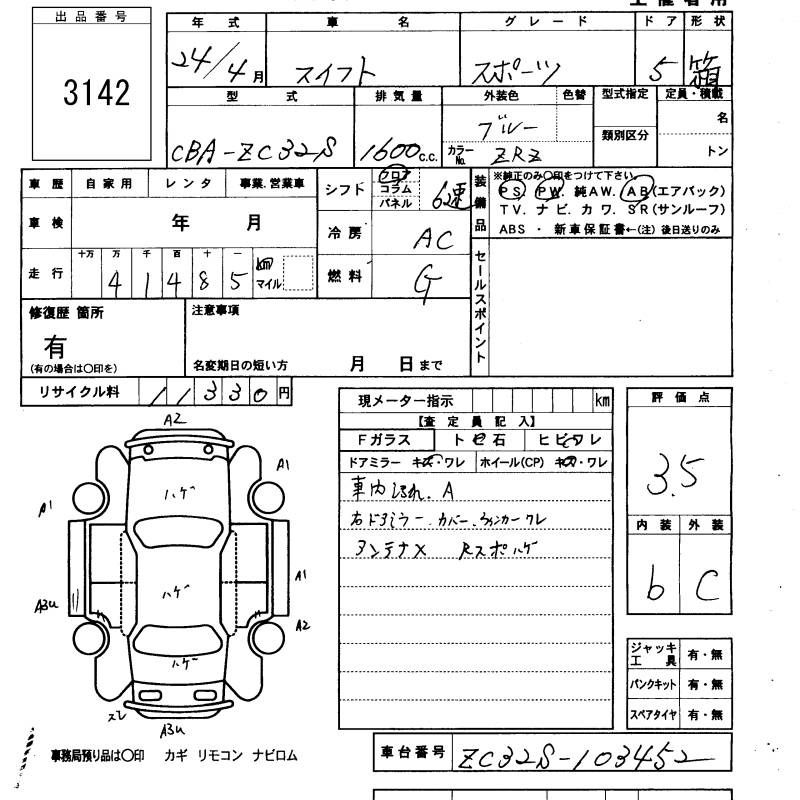 出品番号
3142
年式 車名 グレード ドア 形状
24/4月 スイフト スポーツ 5 箱
型式 排気量 外装色 色替 型式指定 定員・積載
CBA-ZC32S 1600c.c. ブルー 類別区分 名
カラーNo. ZRZ トン
車歴 自家用 レンタ 事業.営業車
車検 年 月
走行 十万 万 千 百 十 一
4 1 4 8 5 km マイル
シフト フロア コラム パネル 6速
冷房 AC
燃料 G
装備品
※純正のみ〇印をつけて下さい。
PS. PW. 純AW. AB(エアバック)
TV. ナビ. カワ. SR(サンルーフ)
ABS ・ 新車保証書←(注) 後日送りのみ
セールスポイント
修復歴 箇所
有
(有の場合は〇印を)
注意事項
名変期日の短い方 月 日まで
リサイクル料 11330円
現メーター指示 km
【査定員記入】
Fガラス トビ石 ヒビワレ
ドアミラー キズ・ワレ ホイール(CP) キズ・ワレ
車内よごれ. A
右ドアミラー. カバー. ウィンカーワレ
アンテナ× Rスポハゲ
評価点
3.5
内装 外装
b C
ジャッキ工具 有・無
パンクキット 有・無
スペアタイヤ 有・無
A2
ハゲ
A1
A1
ハゲ
A1
A3u
A2
ハゲ
スレ
A3u
事務局預り品は〇印 カギ リモコン ナビロム
車台番号 ZC32S-103452